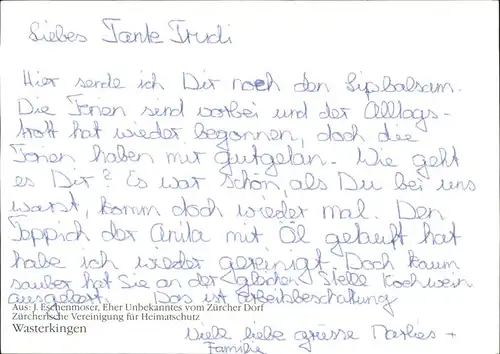 Liebes Tante Trudi
Hier sende ich Dir noch den Lipbalsam.
Die Ferien sind vorbei und der Alltags-
trott hat wieder begonnen, doch die
Ferien haben mir gutgetan. Wie geht
es Dir? Es war schön, als Du bei uns
warst, komm doch wieder mal. Den
Teppich der Anita mit Öl getauft hat
habe ich wieder gereinigt. Doch kaum
sauber hat Sie an der gleichen Stelle Kochwein
ausgeleert. Das ist Arbeitsbeschaffung
Aus: J. Eschenmoser, Eher Unbekanntes vom Zürcher Dorf
Zürcherische Vereinigung für Heimatschutz
Wasterkingen
Viele liebe grüsse Marlies +
Familie